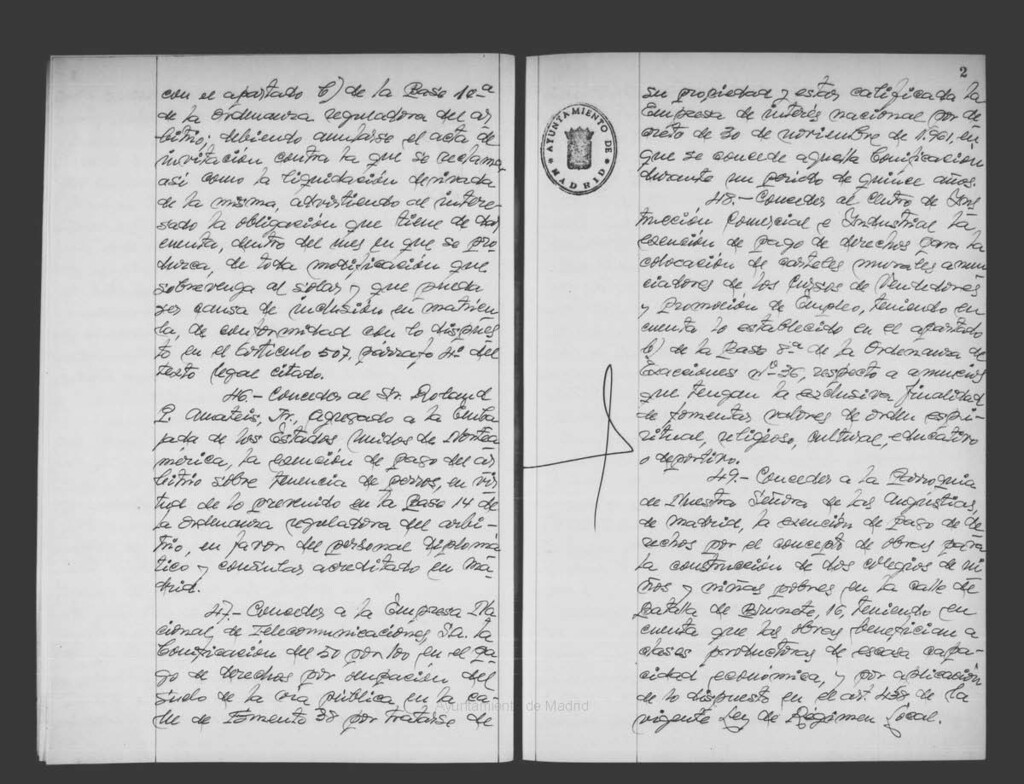 con el apartado b) de la Base 10ª
de la Ordenanza reguladora del ar
bitrio; debiendo anularse el acta de
invitación contra la que se reclama,
así como la liquidación derivada
de la misma, advirtiendo al intere-
sado la obligación que tiene de dar
cuenta, dentro del mes en que se pro
duzca, de toda modificación que
sobrevenga al solar y que pueda
ser causa de inclusión en matrícu
la, de conformidad con lo dispues
to en el artículo 507, párrafo 4º del
texto legal citado.
46.- Conceder al Sr. Roland
P. Amateis, Jr., Agregado a la Emba
jada de los Estados Unidos de Nortea
mérica, la exención de pago del ar
bitrio sobre tenencia de perros, en vir
tud de lo prevenido en la Base 14 de
la Ordenanza reguladora del arbi-
trio, en favor del personal diplomá
tico y consular acreditado en Ma
drid.
47.- Conceder a la Empresa Na
cional de Telecomunicaciones S.a. la
bonificación del 50 por 100 en el pa
go de derechos por ocupación del
suelo de la vía pública en la ca-
lle de Fomento 38 por tratarse de
Ayuntamiento de Madrid
2
AYUNTAMIENTO DE
MADRID
su propiedad y estar calificada la
Empresa de interés nacional por de
creto de 30 de noviembre de 1.961, en
que se concede aquella bonificación
durante un período de quince años.
48.- Conceder al Centro de Ins
trucción Comercial e Industrial la
exención de pago de derechos para la
colocación de carteles murales anun
ciadores de los Cursos de Vendedores
y Promoción de Empleo, teniendo en
cuenta lo establecido en el apartado
b) de la Base 8ª de la Ordenanza de
Exacciones nº 36, respecto a anuncios
que tengan la exclusiva finalidad
de fomentar valores de orden espi-
ritual, religioso, cultural, educativo
o deportivo.
49.- Conceder a la Parroquia
de Nuestra Señora de las Angustias,
de Madrid, la exención de pago de de
rechos por el concepto de obras para
la construcción de dos colegios de ni
ños y niñas pobres en la calle de
Batalla de Brunete, 16, teniendo en
cuenta que las obras benefician a
clases productoras de escasa capa-
cidad económica, y por aplicación
de lo dispuesto en el art. 439 de la
vigente Ley de Régimen Local.